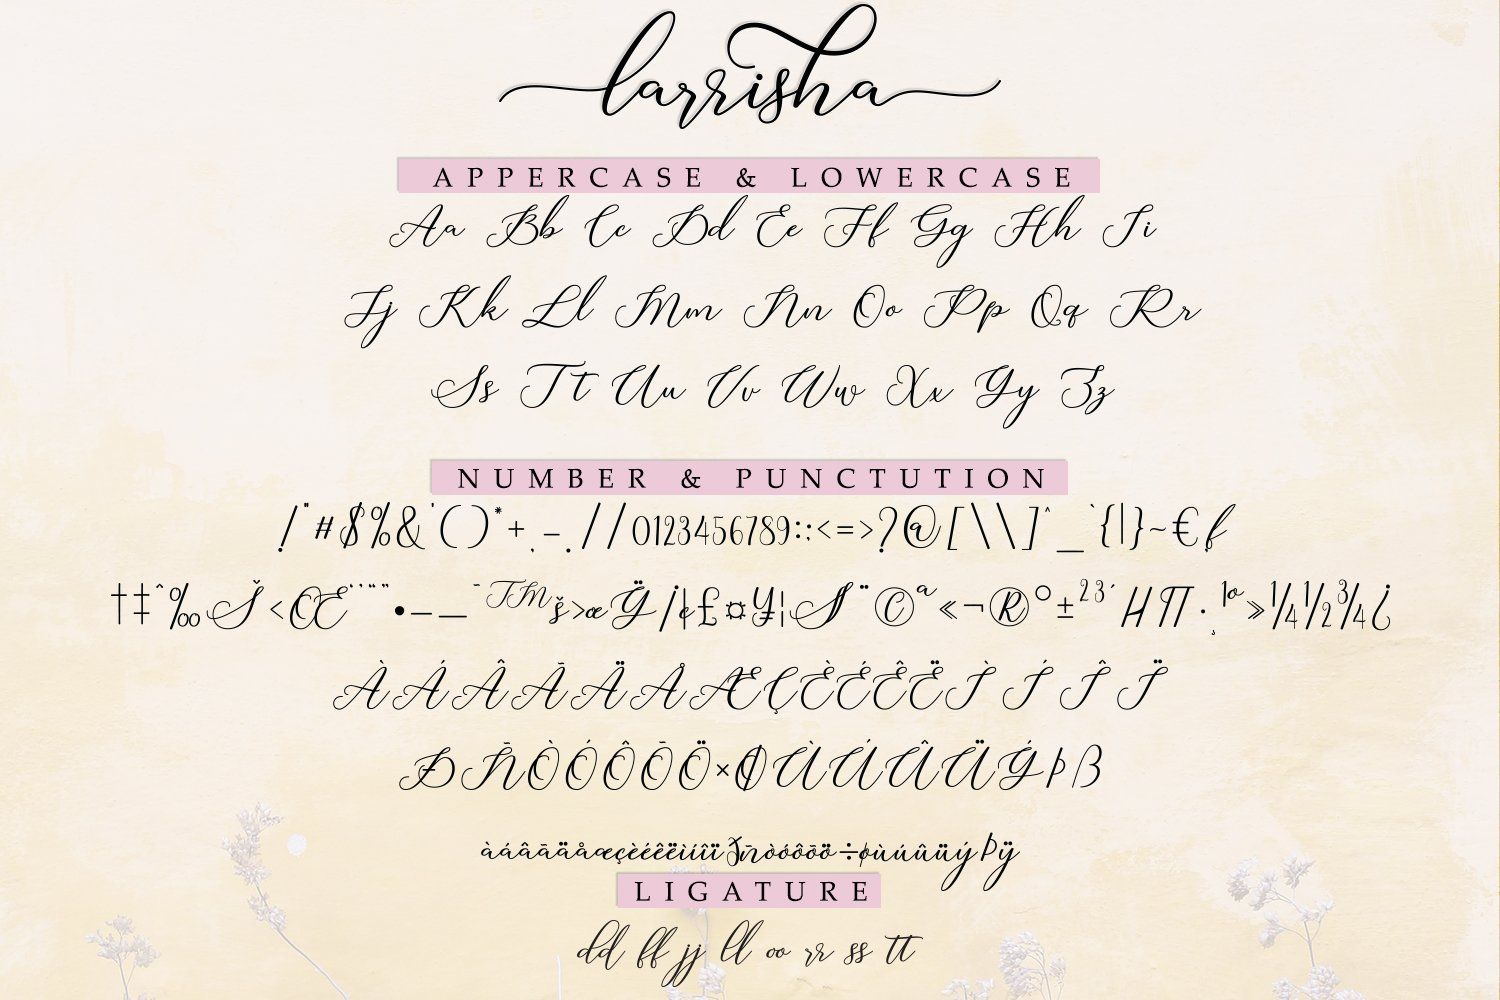 larrisha
APPERCASE & LOWERCASE
Aa Bb Cc Dd Ee Ff Gg Hh Ii
Jj Kk Ll Mm Nn Oo Pp Qq Rr
Ss Tt Uu Vv Ww Xx Yy Zz
NUMBER & PUNCTUTION
!"#$%&'()*+,-./\/0123456789:;<=>?@[\\]^_`{|}~€ƒ
†‡ˆ‰Š<Œ‘’“”•–—˜TMš>œŸ¡¢£¤¥¦§¨©ª«¬®°±²³´µ¶·¸¹º»¼½¾¿
ÀÁÂÃÄÅÆÇÈÉÊËÌÍÎÏ
ÐÑÒÓÔÕÖ×ØÙÚÛÜÝþß
àáâãäåæçèéêëìíîï ñòóôõö÷øùúûüýÞÿ
LIGATURE
dd ff jj ll oo rr ss tt